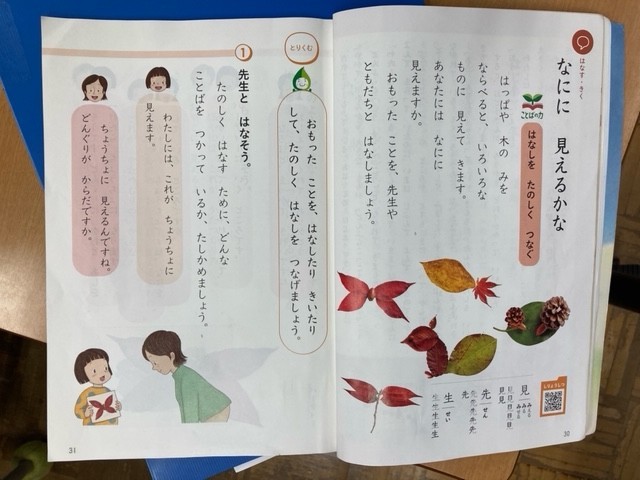 はなす・きく
なにに 見えるかな
ことばの力
はなしを たのしく つなぐ
はっぱや 木の みを
ならべると、いろいろな
ものに 見えて きます。
あなたには なにに
見えますか。
おもった ことを、先生や
ともだちと はなしましょう。
見
みえる
みせる
先
せん
先
生
せい
30
とりくむ
おもった ことを、はなしたり きいたり
して、たのしく はなしを つなげましょう。
1 先生と はなそう。
たのしく はなす ために、どんな
ことばを つかって いるか、たしかめましょう。
わたしには、これが ちょうちょに
見えます。
ちょうちょに 見えるんですね。
どんぐりが からだですか。
31